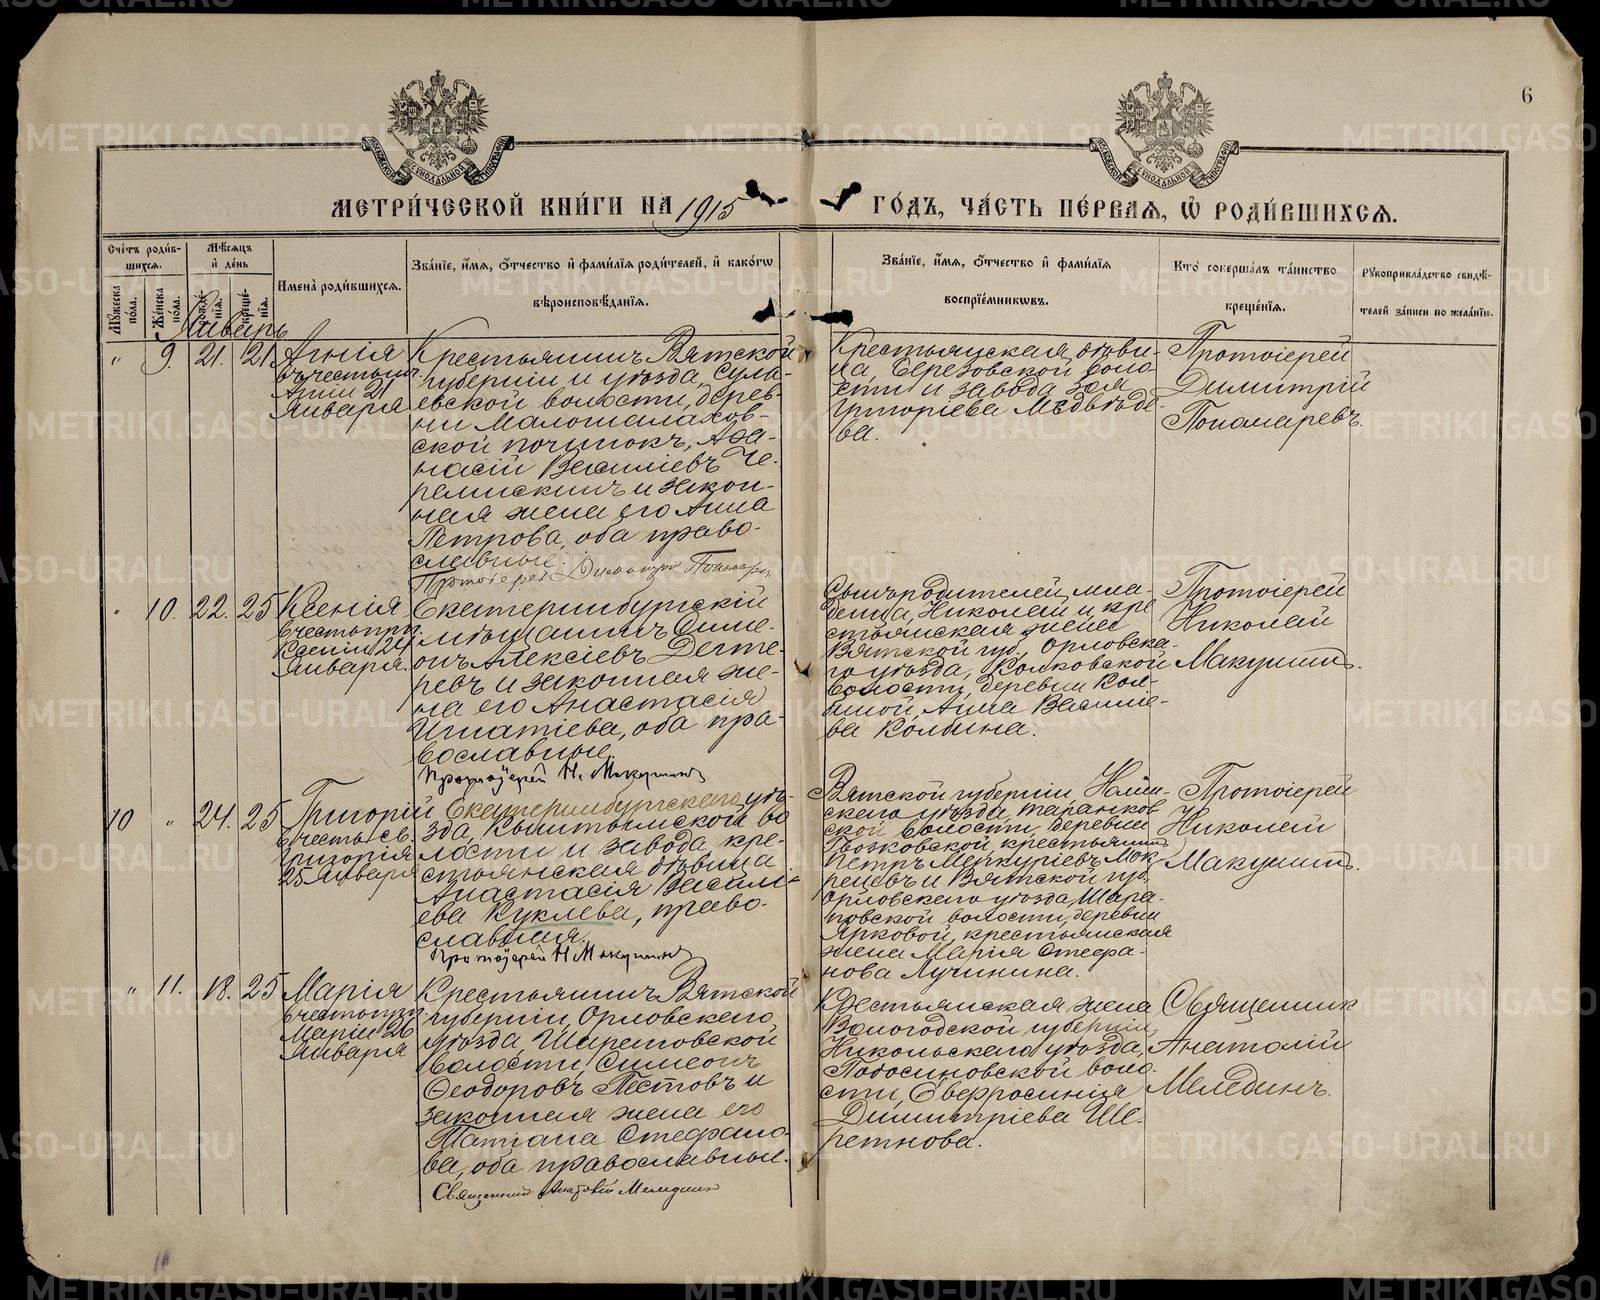 6
МЕТРИ́ЧЕСКОЙ КНИ́ГИ НА 1915 ГО́ДЪ, ЧА́СТЬ ПЕ́РВАЯ, Ѡ РОДИ́ВШИХСЯ.
Сче́тъ роди́в-
шихся.
Мѣ́сяцъ
и де́нь
Мꙋ́жеска по́ла.
Же́нска по́ла.
рожде́нїя.
креще́нїя.
Имена̀ роди́вшихся.
Зва́нїе, и́мя, о́тчество и фами́лїя роди́телей, и како́гѡ
вѣроисповѣ́данїя.
Зва́нїе, и́мя, о́тчество и фами́лїя
воспрїе́мникѡвъ.
Кто̀ соверша́лъ та́инство
креще́нїя.
Рꙋкоприкла́дство свидѣ́-
телей за́писи по жела́нїю.
Январь
" 9. 21. 21
Агнія
въ честь мч.
Агніи 21
Января
Крестьянинъ Вятской
губерніи и уѣзда, Сула-
евской волости, дерев-
ни Малошалахов-
ской починокъ, Аѳа-
насій Василіевъ Че-
ремискинъ и закон-
ная жена его Анна
Петрова, оба право-
славные.
Протоіерей Димитрій Пономарев
Крестьянская дѣви-
ца, Березовской воло-
сти и завода Зоя
Григоріева Медвѣде-
ва.
Протоіерей
Димитрій
Пономаревъ.
" 10. 22. 25
Ксенія
в честь прп.
Ксеніи 24
Января.
Екатеринбургскій
мѣщанинъ Симе-
онъ Алексіевъ Дегте-
ревъ и законная же-
на его Анастасія
Игнатіева, оба пра-
вославные.
Протоіерей Н. Макушинъ
Сынъ родителей, мла-
денца, Николай и кре
стьянская жена
Вятской губ., Орловска-
го уѣзда, Колковской
волости, деревни Кол-
биной, Анна Василіе-
ва Колбина.
Протоіерей
Николай
Макушинъ.
10 " 24. 25
Григорій
в честь св.
Григорія
25 Января
Екатеринбургскаго уѣ-
зда, Кыштымской во
лости и завода, кре-
стьянская дѣвица
Анастасія Васил-
ева Куклева, право-
славная.
Протоіерей Н Макушинъ
Вятской губерніи Нолин-
скаго уѣзда, Таранков
ской волости, деревни
Гвозковской, крестьянинъ
Петръ Меркуріевъ Мок
рецевъ и Вятской губ.
Орловскаго уѣзда, Шара-
новской волости, деревни
Ярковой, крестьянская
жена Марія Стефа-
нова Лучинина.
Протоіерей
Николай
Макушинъ.
" 11. 18. 25
Марія
в честь прп.
Маріи 26
Января
Крестьянинъ Вятской
губерніи, Орловскаго
уѣзда, Шараповской
волости, Симеонъ
Ѳеодоровъ Пестовъ и
законная жена его
Татіана Стефано-
ва, оба православные.
Священникъ Анатолій Мелединъ
Крестьянская жена
Вологодской губерніи,
Никольскаго уѣзда,
Подосиновской воло-
сти, Евфросинія
Димитріева Ше-
ретнова.
Священник
Анатолій
Мелединъ.